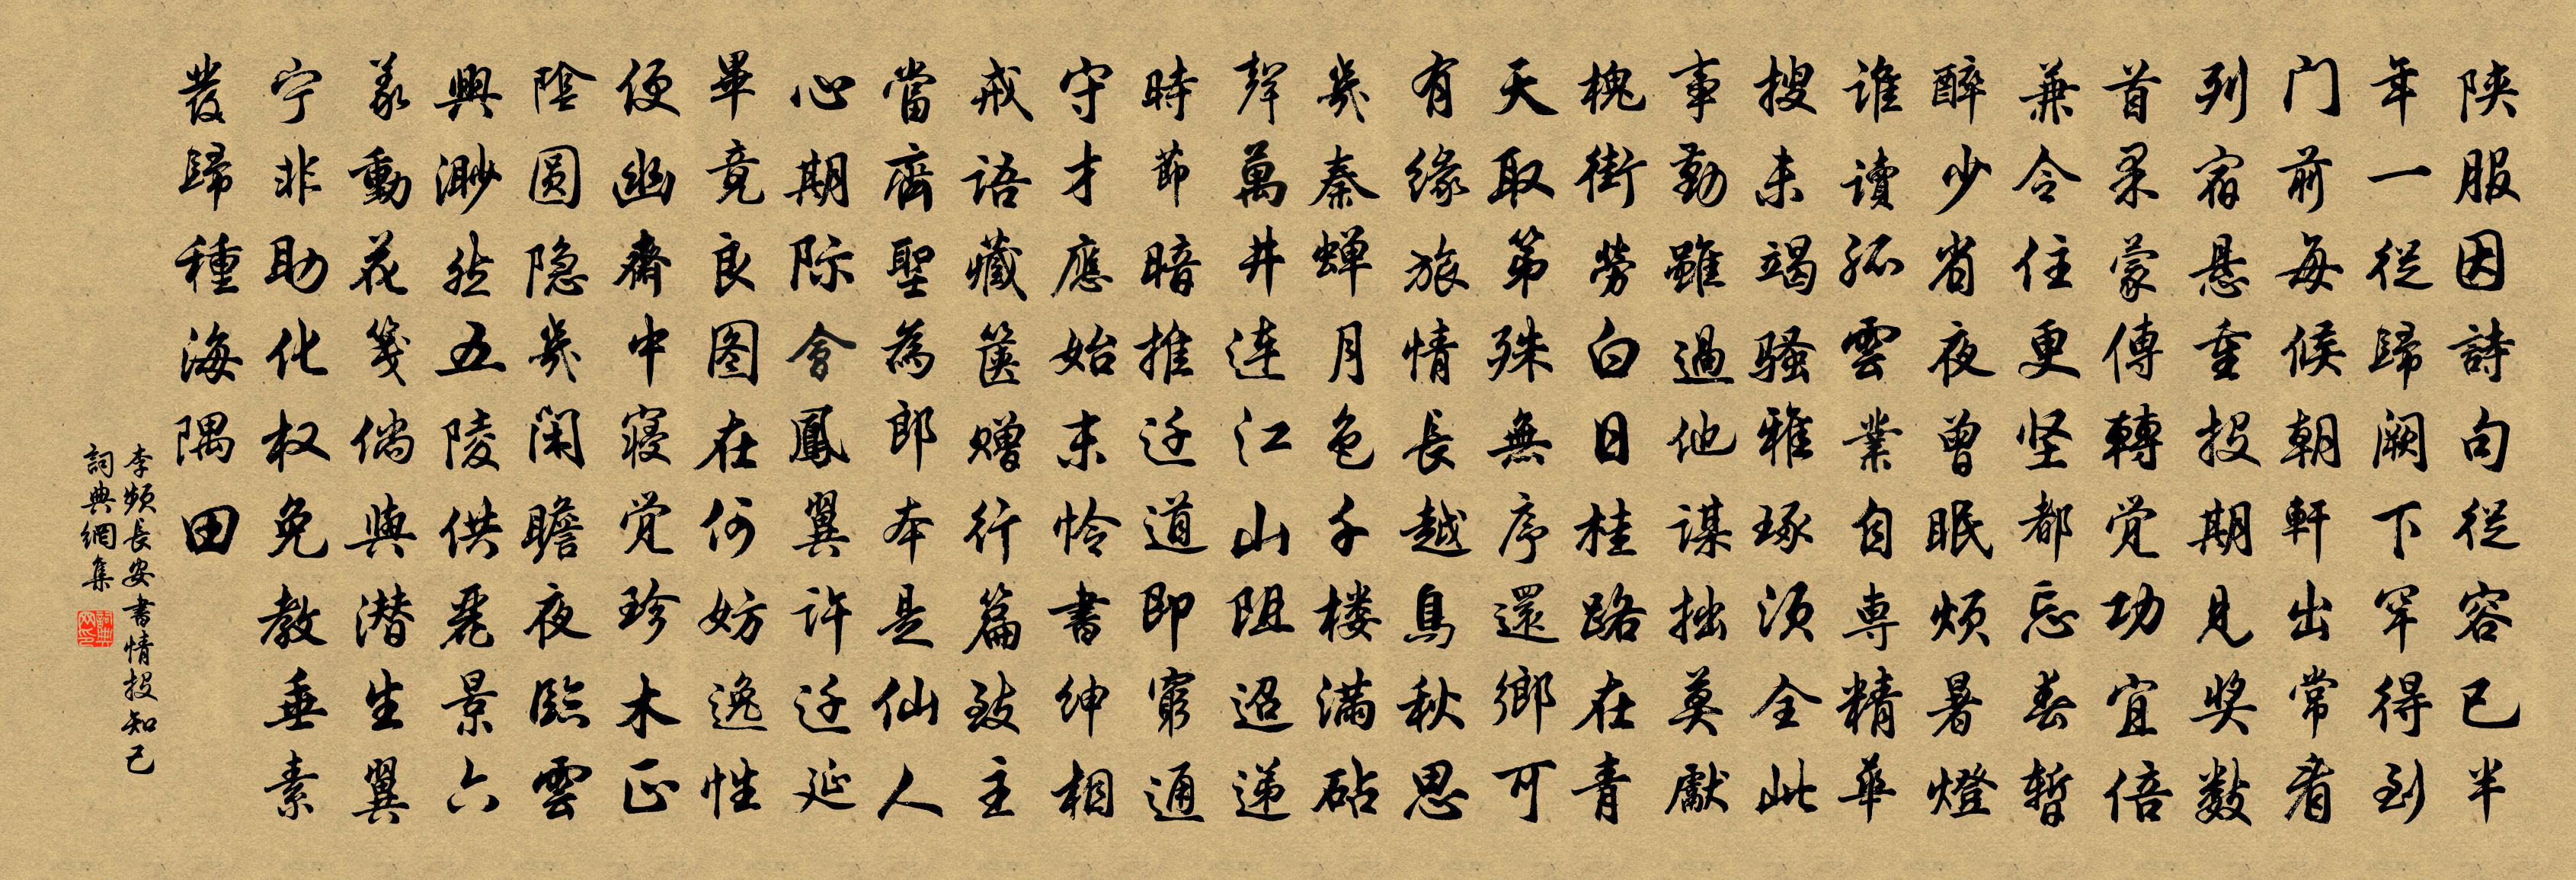 陝服因詩句從容已半
年一從歸闕下罕得到
门前每候朝軒出常看
列宿悬重投期見奖数
首果蒙傳轉觉功宜倍
兼令住更坚都忘春暫
醉少省夜曾眠烦暑燈
谁讀孤雲業自専精華
搜未竭骚雅琢须全此
事勤雖過他谋拙莫獻
槐街勞白日桂路在青
天取第殊無序還鄉可
有缘旅情長越鳥秋思
幾秦蝉月色千楼满砧
聲萬井連江山阻迢递
時節暗推迁道即窮通
守才應始末怜書紳相
戒語藏箧赠行篇致主
當齊聖為郎本是仙人
心期际會鳳翼許迁延
畢竟良图在何妨逸性
便幽齋中寝觉珍木正
陰圆隐幾閑瞻夜臨雲
興渺然五陵供麗景六
義動花箋倘與潜生翼
宁非助化权免教垂素
發歸種海隅田
李頻長安書情投知己
詞典網集
詞典网印